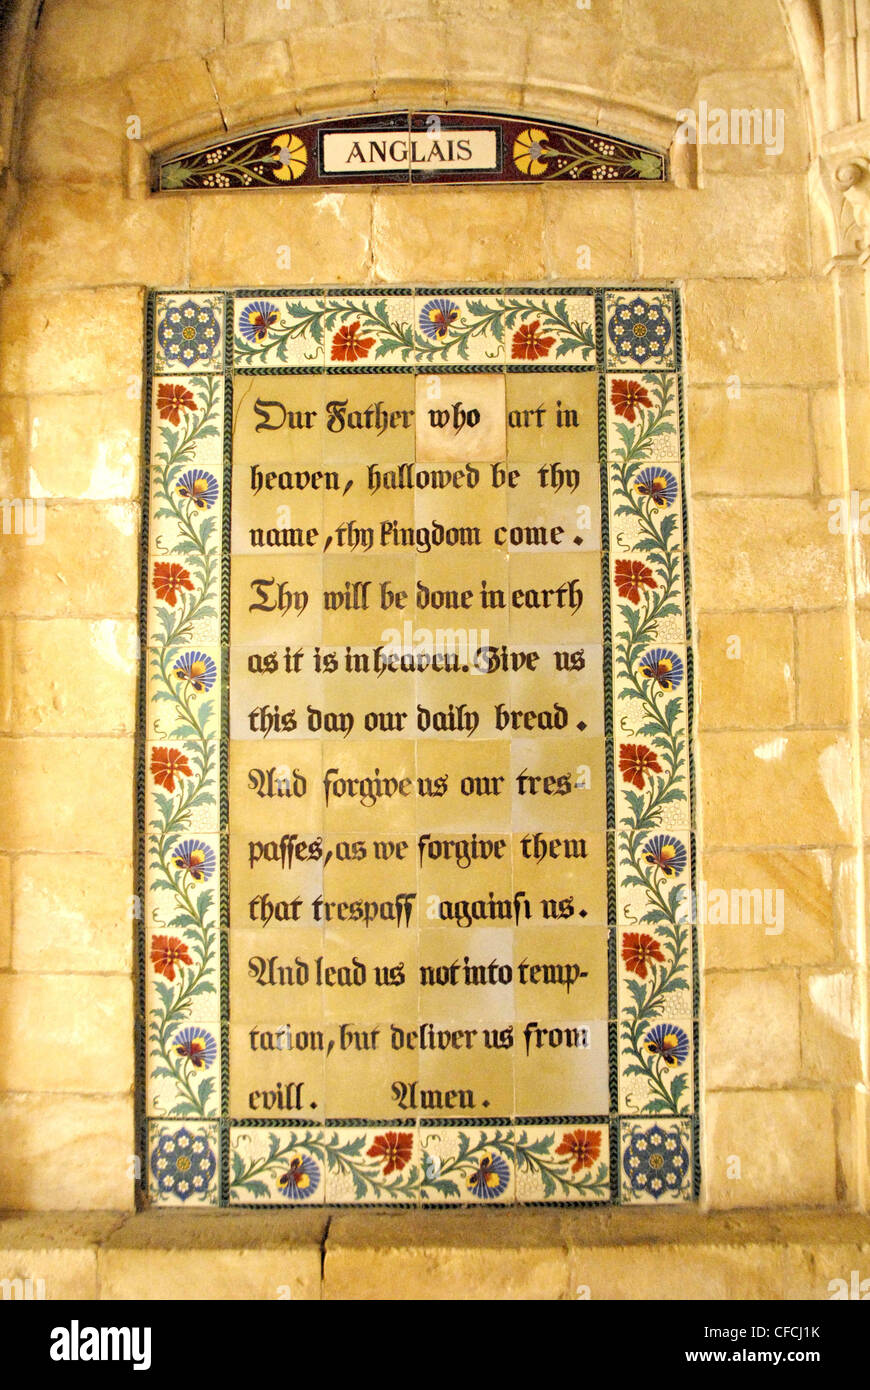 ANGLAIS
Our Father who art in
heaven, hallowed be thy
name, thy kingdom come.
Thy will be done in earth
as it is in heaven. Give us
this day our daily bread.
And forgive us our tres-
passes, as we forgive them
that trespass against us.
And lead us not into temp-
tation, but deliver us from
evill. Amen.
alamy
Image ID: CFCJ1K
www.alamy.com